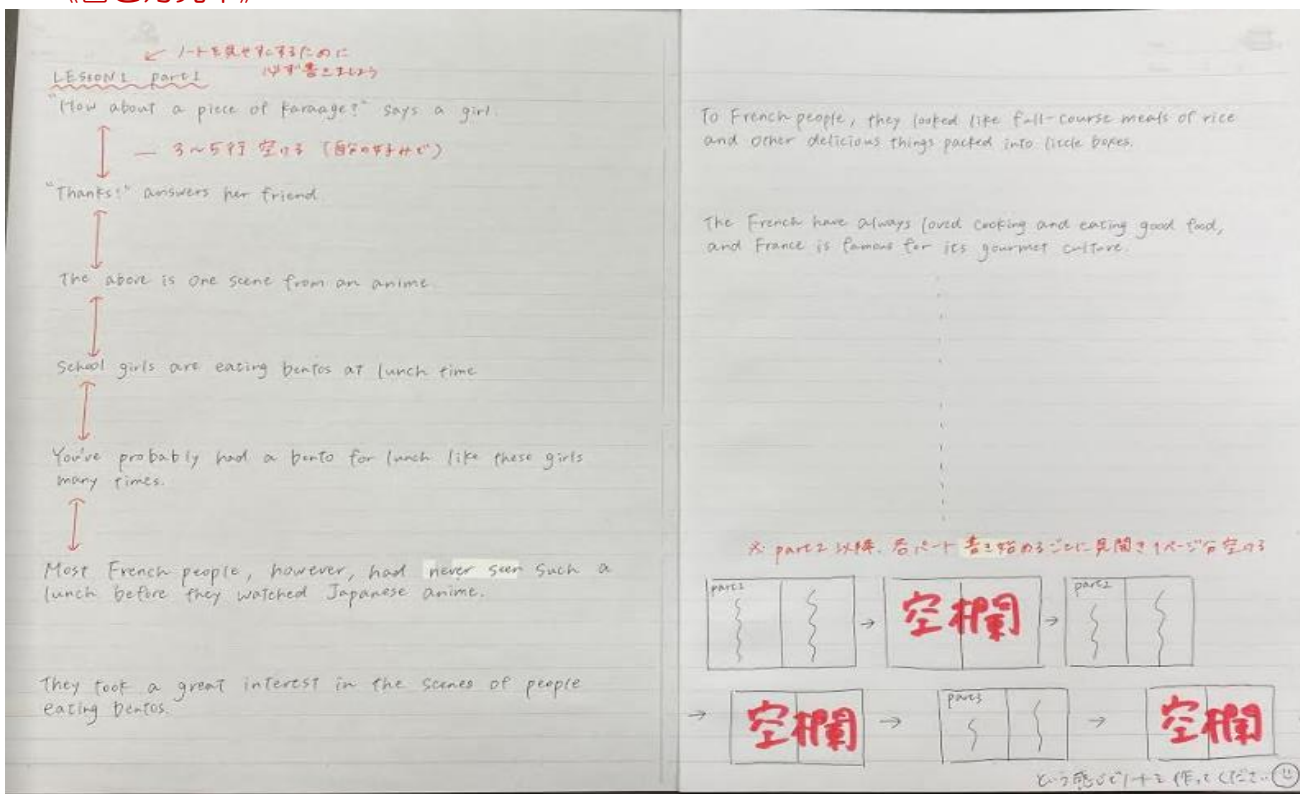 《書き方見本》
← ノートを見やすくするために
必ず書きましょう
LESSON1 part1
"How about a piece of karaage?" says a girl.
― 3〜5行 空ける (自分の好みで)
"Thanks!" answers her friend.
The above is one scene from an anime.
School girls are eating bentos at lunch time
You've probably had a bento for lunch like these girls
many times.
Most French people, however, had never seen such a
lunch before they watched Japanese anime.
They took a great interest in the scenes of people
eating bentos.
To French people, they looked like full-course meals of rice
and other delicious things packed into little boxes.
The French have always loved cooking and eating good food,
and France is famous for its gourmet culture.
※ part2 以降、各パート書き始めるごとに見開き1ページ分空ける
part1 → 空欄 → part2
→ 空欄 → part3 → 空欄
という感じでノートを作ってください